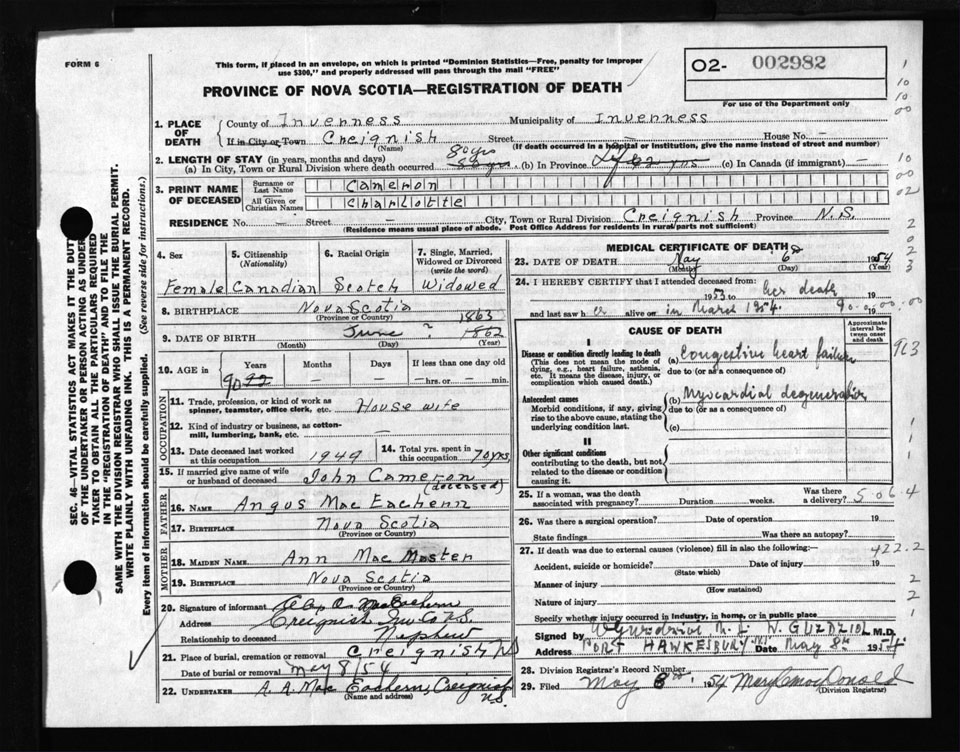 FORM 6
This form, if placed in an envelope, on which is printed "Dominion Statistics—Free, penalty for improper
use $300," and properly addressed will pass through the mail "FREE"
O2- 002982
For use of the Department only
PROVINCE OF NOVA SCOTIA—REGISTRATION OF DEATH
1. PLACE OF DEATH County of Inverness Municipality of Inverness
If in City or Town Creignish Street House No. —
(Name) (If death occurred in a hospital or institution, give the name instead of street and number)
2. LENGTH OF STAY (in years, months and days)
(a) In City, Town or Rural Division where death occurred 80 yrs (b) In Province Life (c) In Canada (if immigrant) —
3. PRINT NAME OF DECEASED Surname or Last Name Cameron
All Given or Christian Names Charlotte
RESIDENCE No. — Street — City, Town or Rural Division Creignish Province N.S.
(Residence means usual place of abode. Post Office Address for residents in rural parts not sufficient)
4. Sex Female
5. Citizenship (Nationality) Canadian
6. Racial Origin Scotch
7. Single, Married, Widowed or Divorced (write the word) Widowed
8. BIRTHPLACE Nova Scotia
(Province or Country)
9. DATE OF BIRTH June ? 1863 1862
(Month) (Day) (Year)
10. AGE in Years 90 92 Months — Days — If less than one day old —hrs. or — min.
OCCUPATION
11. Trade, profession, or kind of work as spinner, teamster, office clerk, etc. House wife
12. Kind of industry or business, as cotton-mill, lumbering, bank, etc. —
13. Date deceased last worked at this occupation 1949
14. Total yrs. spent in this occupation 70 yrs
15. If married give name of wife or husband of deceased John Cameron (deceased)
FATHER
16. NAME Angus Mac Eachern
17. BIRTHPLACE Nova Scotia
(Province or Country)
MOTHER
18. MAIDEN NAME Ann Mac Master
19. BIRTHPLACE Nova Scotia
(Province or Country)
20. Signature of informant MacEachern
Address Creignish Inv Co N.S.
Relationship to deceased Nephew
21. Place of burial, cremation or removal Creignish NS
Date of burial or removal May 8/54
22. UNDERTAKER A. A. Mac Eachern, Creignish N.S.
(Name and address)
MEDICAL CERTIFICATE OF DEATH
23. DATE OF DEATH May 6 1954
(Month) (Day) (Year)
24. I HEREBY CERTIFY that I attended deceased from:
1953 to her death 19
and last saw her alive on in March 1954. 19
CAUSE OF DEATH
Approximate interval between onset and death
I
Disease or condition directly leading to death
(This does not mean the mode of dying, e.g., heart failure, asthenia, etc. It means the disease, injury, or complication which caused death.)
(a) Congestive heart failure
due to (or as a consequence of)
Antecedent causes
Morbid conditions, if any, giving rise to the above cause, stating the underlying condition last.
(b) Myocardial degeneration
due to (or as a consequence of)
(c)
II
Other significant conditions
contributing to the death, but not related to the disease or condition causing it.
25. If a woman, was the death associated with pregnancy? Duration weeks. Was there a delivery?
5 0 6 4
26. Was there a surgical operation? Date of operation 19
State findings Was there an autopsy?
27. If death was due to external causes (violence) fill in also the following:—
422.2
Accident, suicide or homicide? Date of injury 19
(State which)
Manner of injury
(How sustained)
Nature of injury
Specify whether injury occurred in industry, in home, or in public place
Signed by W. GUZDZIOL M.D.
Address PORT HAWKESBURY Date May 8th 1954
28. Division Registrar's Record Number
29. Filed May 8 1954 Mary C MacDonald
(Division Registrar)
SEC. 46—VITAL STATISTICS ACT MAKES IT THE DUTY
OF THE UNDERTAKER OR PERSON ACTING AS UNDER-
TAKER TO OBTAIN ALL THE PARTICULARS REQUIRED
IN THE "REGISTRATION OF DEATH" AND TO FILE THE
SAME WITH THE DIVISION REGISTRAR WHO SHALL ISSUE THE BURIAL PERMIT.
WRITE PLAINLY WITH UNFADING INK. THIS IS A PERMANENT RECORD.
Every item of information should be carefully supplied. (See reverse side for instructions.)